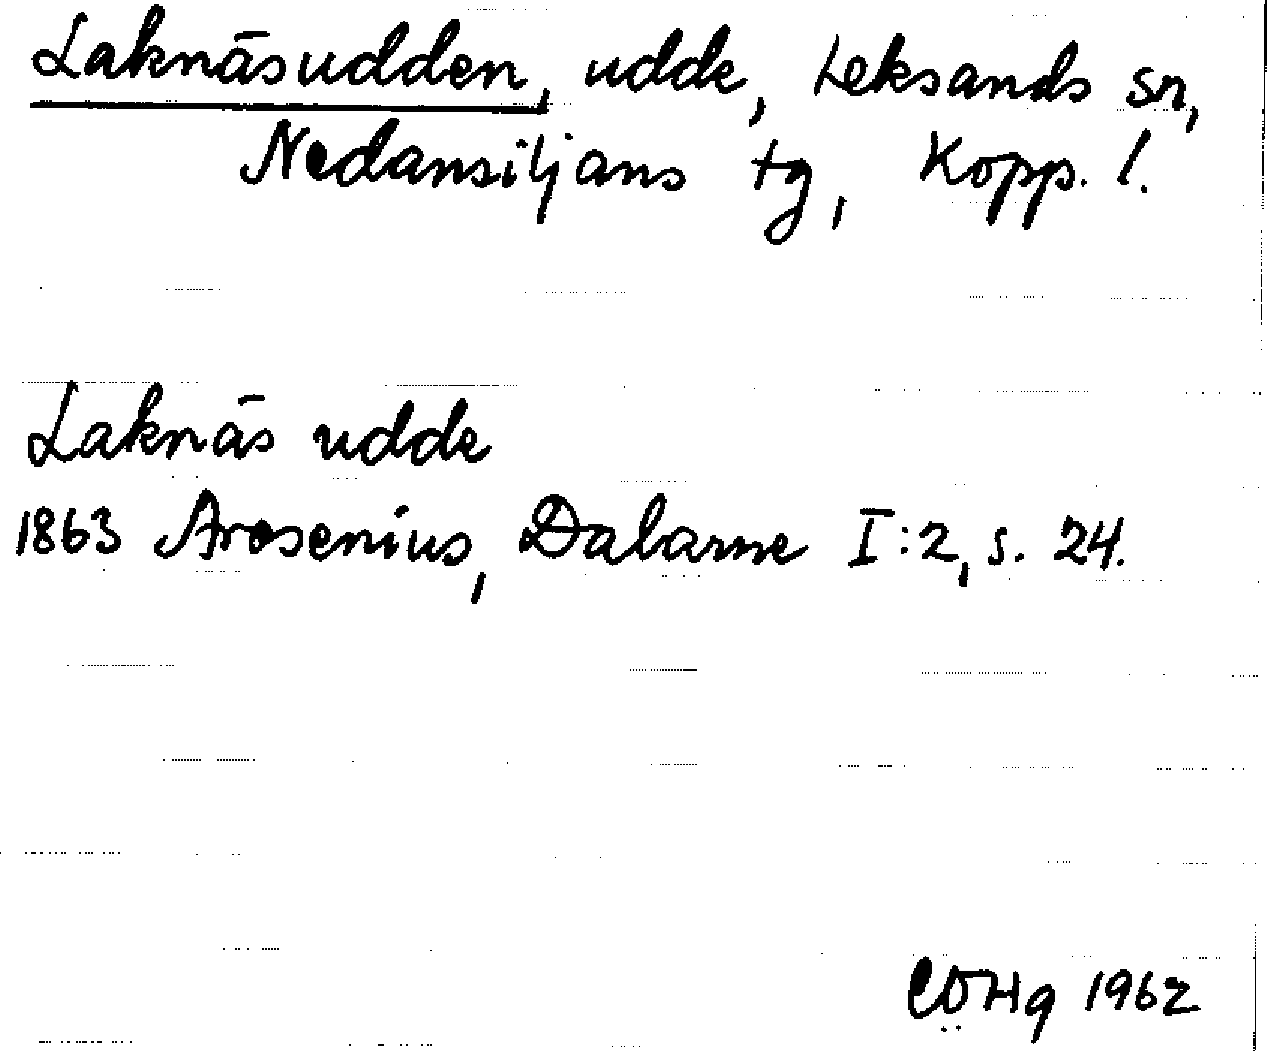 Laknäsudden, udde, Leksands sn,
Nedansiljans tg, Kopp. l.
Laknäs udde
1863 Arosenius, Dalarne I:2, s. 24.
CÖHg 1962